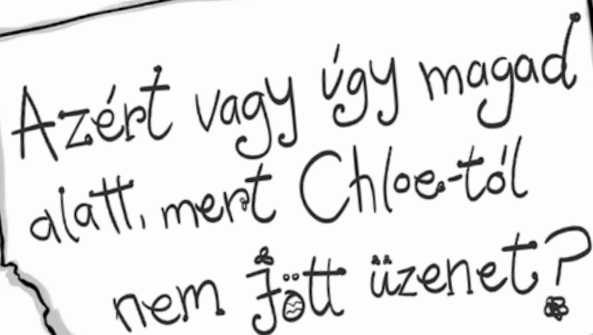 Azért vagy úgy magad
alatt, mert Chloe-tól
nem Jött üzenet?